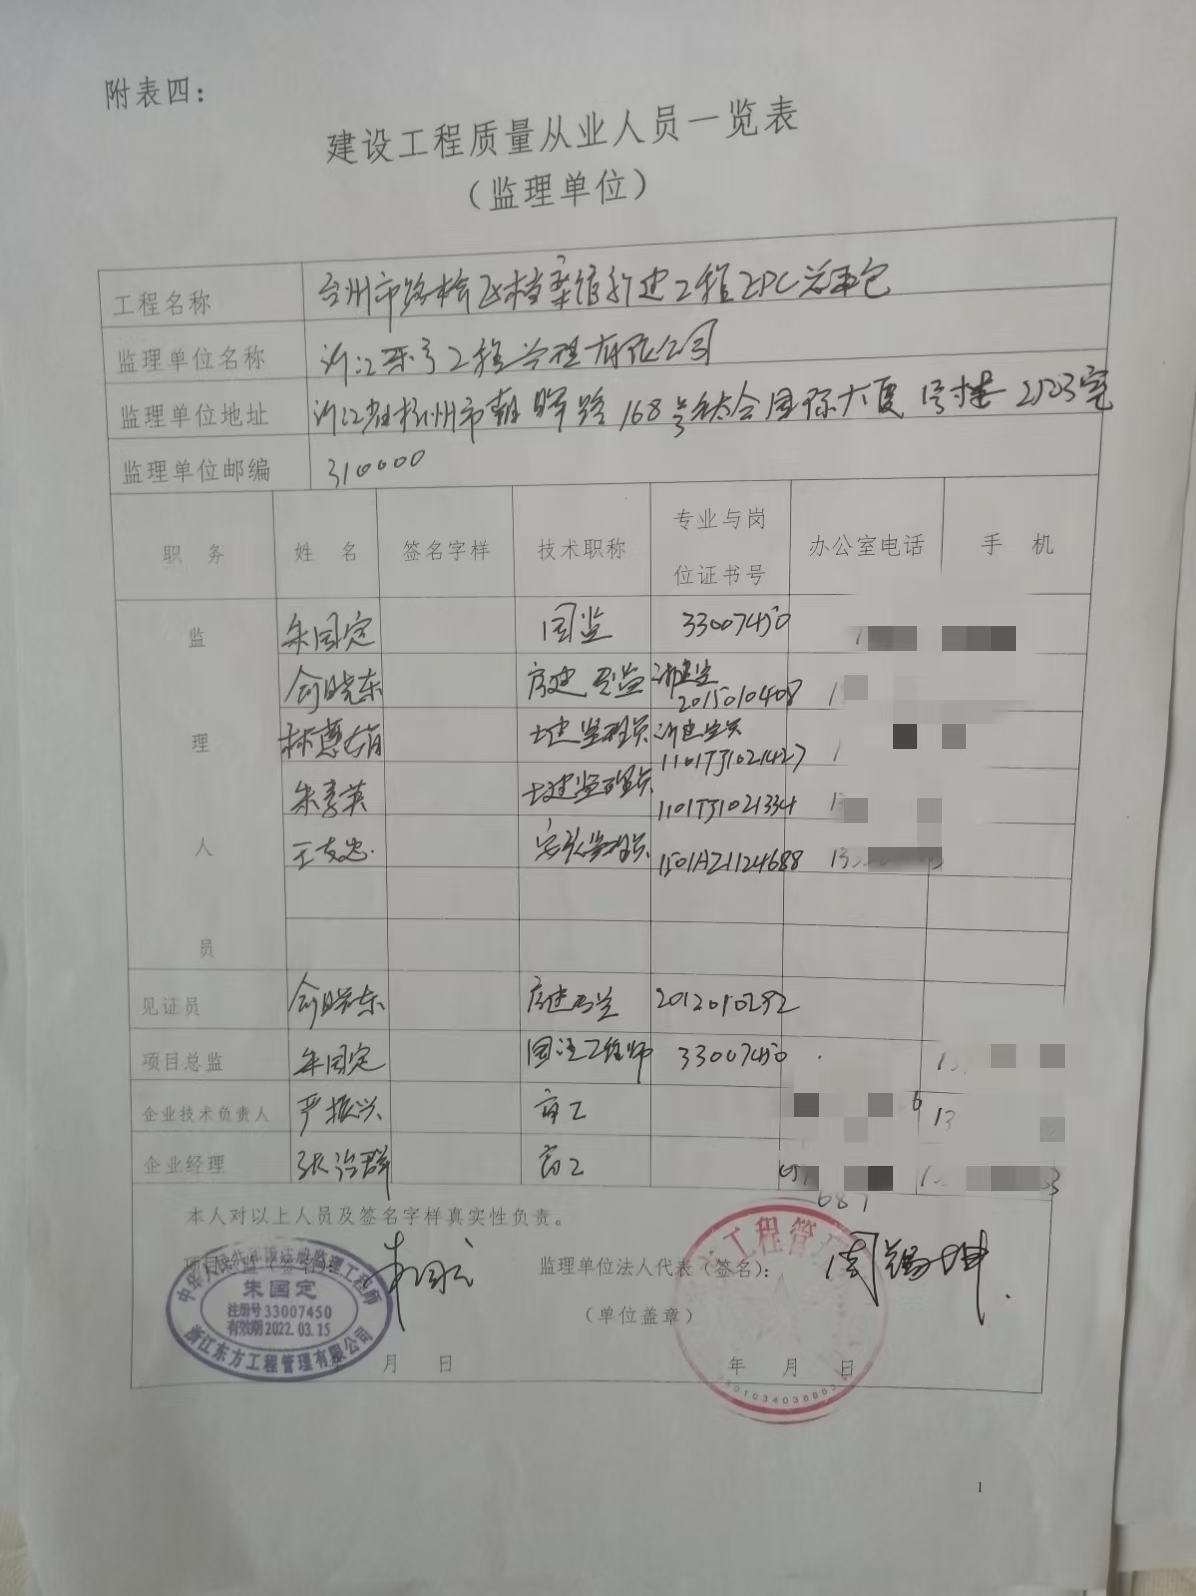 附表四：
建设工程质量从业人员一览表
（监理单位）
工程名称 台州市路桥区档案馆新建工程EPC总承包
监理单位名称 浙江东方工程管理有限公司
监理单位地址 浙江省杭州市朝晖路168号钛合国际大厦 号楼 2703室
监理单位邮编 310000
职 务 姓 名 签名字样 技术职称 专业与岗位证书号 办公室电话 手 机
监理人员
朱国定 国监 33007450
俞晓东 房建 浙建监 2015010408
林 土建监理员 浙建监员 1101TJ1021427
朱 英 土建监理员 1101TJ1021334
王友忠 安装监理员 1501AZ1124688
见证员 俞晓东 房建 2012010292
项目总监 朱国定 国注工程师 33007450
企业技术负责人 严振兴 高工 13
企业经理 张治群 高工
687
本人对以上人员及签名字样真实性负责。
朱国定
监理单位法人代表（签名）： 周锡坤
（单位盖章）
月 日
年 月 日
中华人民共和国注册监理工程师
朱国定
注册号33007450
有效期2022.03.15
浙江东方工程管理有限公司
工程管
1